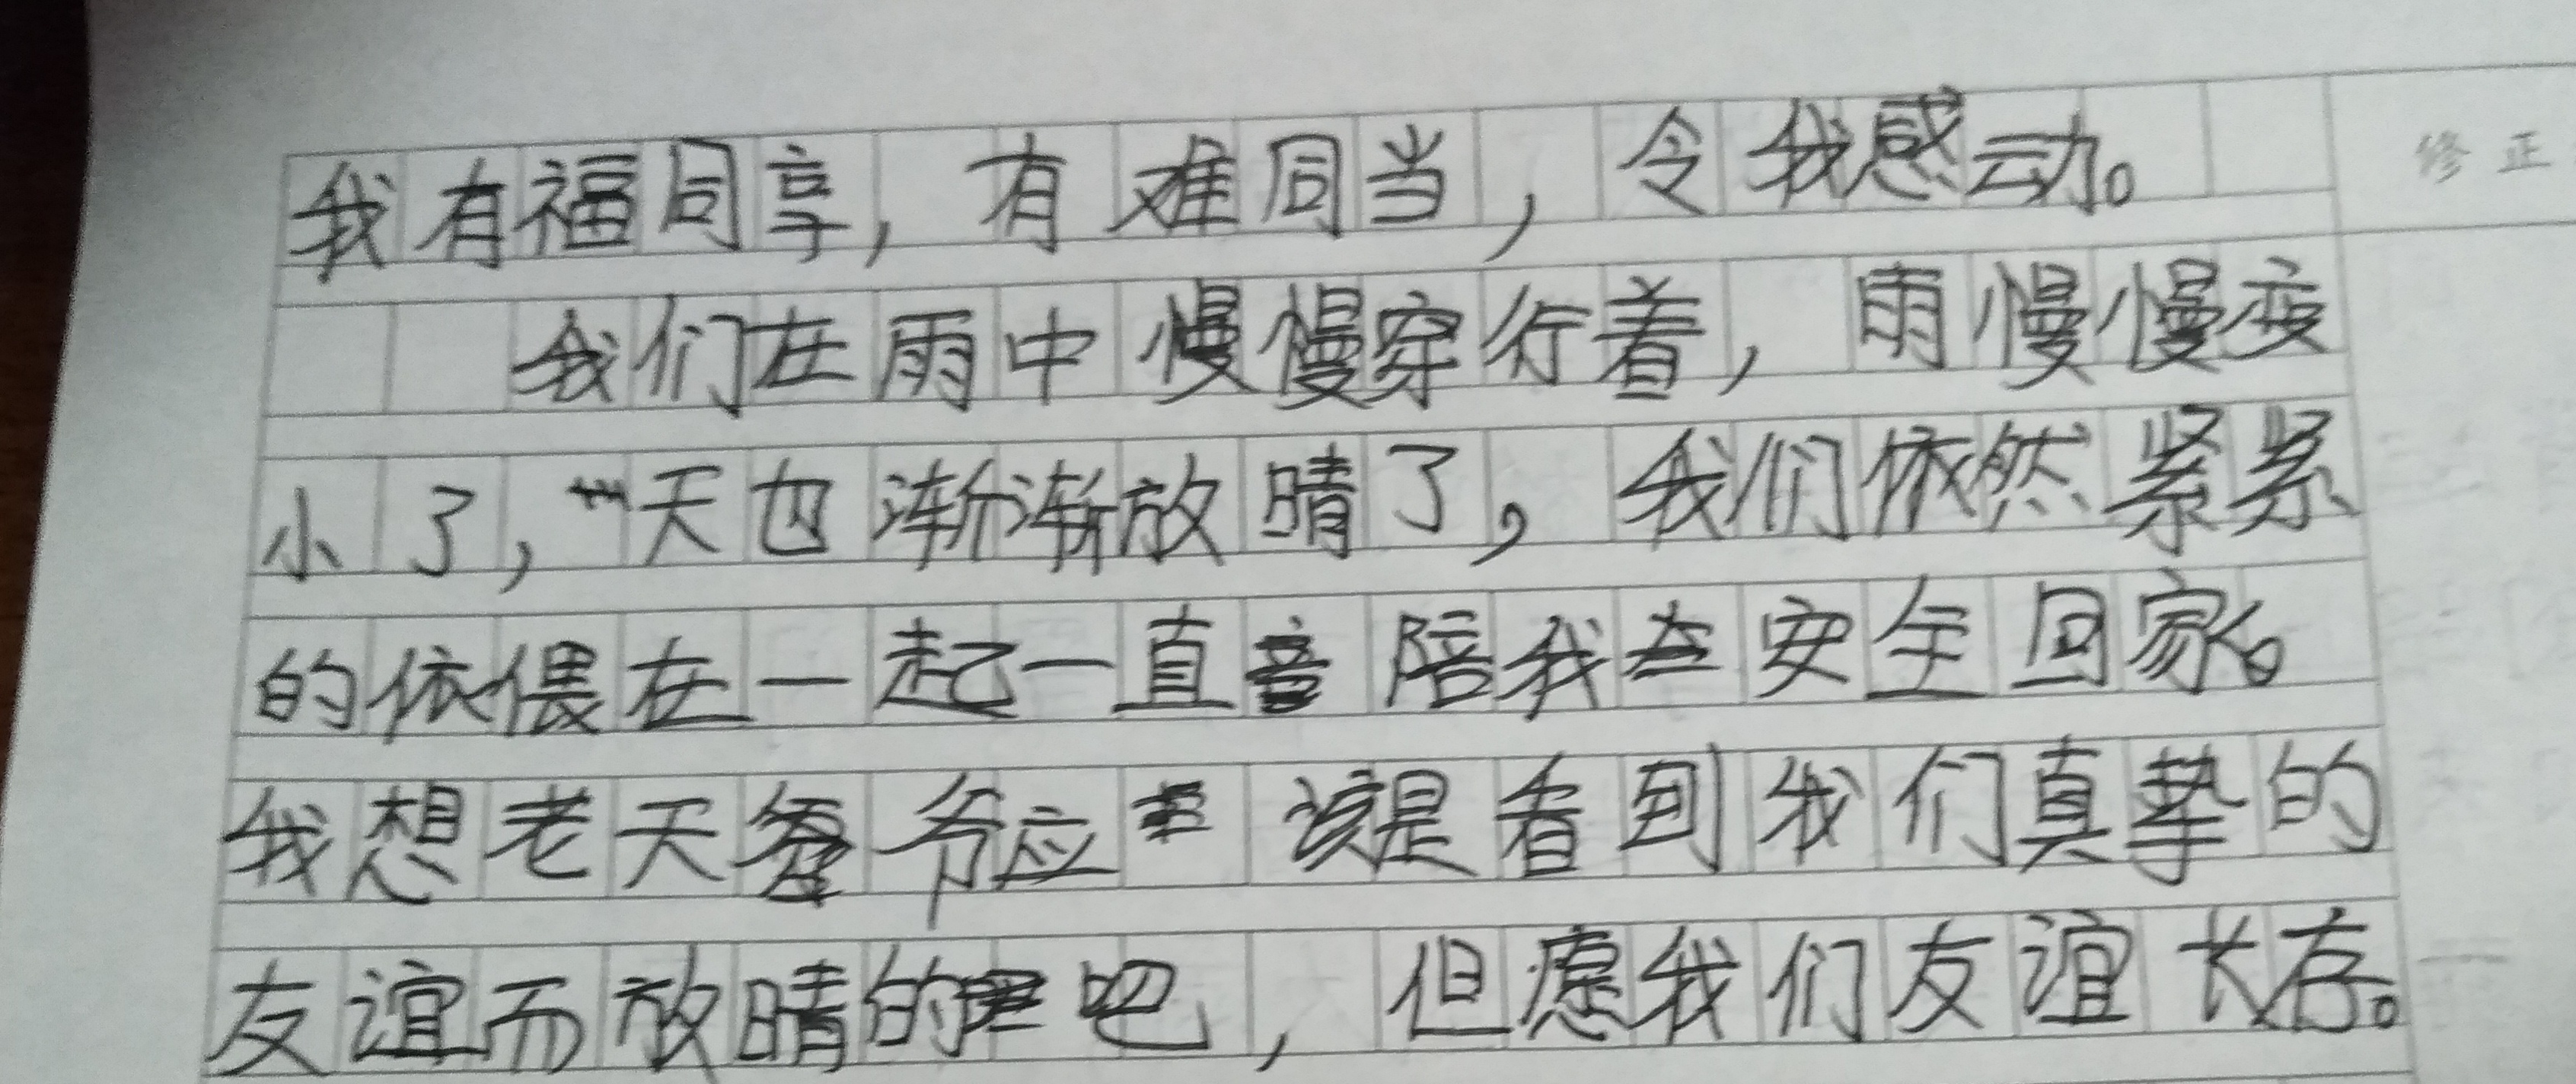 我有福同享，有难同当，令我感动。
修正
我们在雨中慢慢穿行着，雨慢慢变
小了，天也渐渐放晴了，我们依然紧紧
的依偎在一起一直陪我安全回家。
我想老天爷爷应该是看到我们真挚的
友谊而放晴的吧，但愿我们友谊长存。